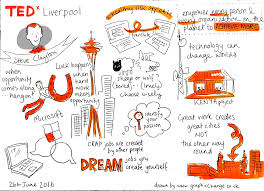 TEDx Liverpool
Steve Clayton
when
opportunity
comes
along -
hanger!
Luck happens
when
hard
work
meets
opportunity
Microsoft
translate
sheep or wolf
choose
wisely
identify
your
passion
CRAP jobs are created
by other people
DREAM jobs you
create yourself
empower every person &
every organisation on the
planet to ACHIEVE MORE
technology can
change
worlds
KENYA project
Great work creates
great cities
NOT
the other
way
round
26th June 2016
drawn by www.graphicchange.co.uk